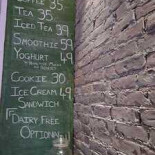 COFFEE 35
TEA 35
ICED TEA 39
SMOOTHIE 59
YOGHURT 49
COOKIE 30
ICE CREAM 49
SANDWICH
DAIRY FREE
OPTION